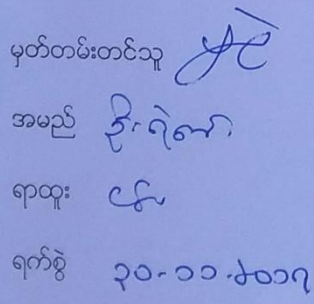 မှတ်တမ်းတင်သူ
အမည် ဦးရဲ
ရာထူး
ရက်စွဲ ၃၀-၁၁-၂၀၁၇